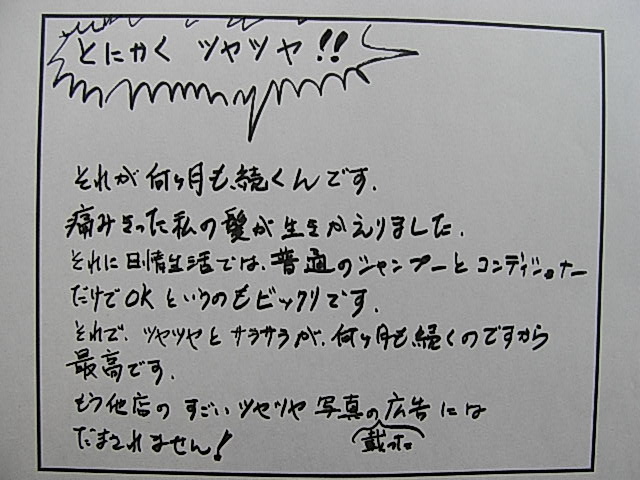 とにかく ツヤツヤ!!
それが何ヶ月も続くんです.
痛みきった私の髪が生きかえりました.
それに日情生活では、普通のシャンプーとコンディショナー
だけでOKというのもビックリです.
それで、ツヤツヤとサラサラが、何ヶ月も続くのですから
最高です.
もう他店のすごいツヤツヤ写真の広告には
載った
だまされません!